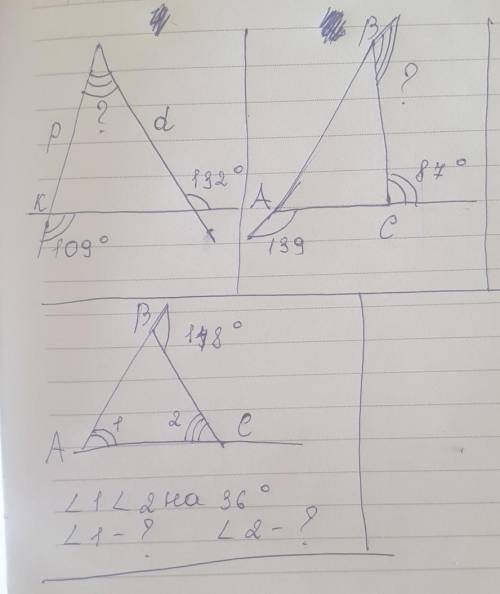 ?
p
d
K
132°
109°
B
?
A
87°
C
139
B
148°
A
1
2
C
∠1∠2 на 36°
∠1-? ∠2-?